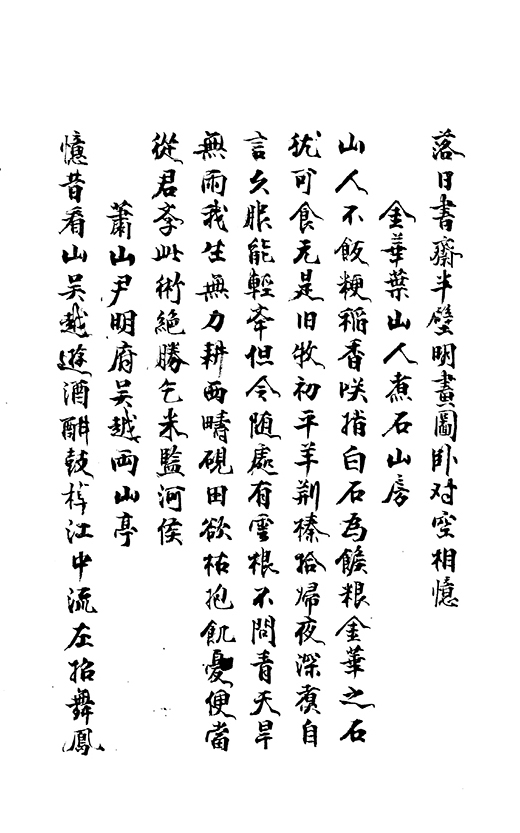 落日書齋半壁明畫圖卧对空相憶
金華葉山人煮石山房
山人不飯粳稻香咲指白石為餱粮金華之石
犹可食无是旧牧初平羊荆榛拾歸夜深煑自
言久服能輕举但令随處有雲根不問青天旱
無雨我生無力耕西疇硯田欲枯抱飢憂便當
從君孝此術絶勝乞米監河侯
蕭山尹明府吴越两山亭
憶昔看山吴越遊酒酣鼓枻江中流左招舞鳳